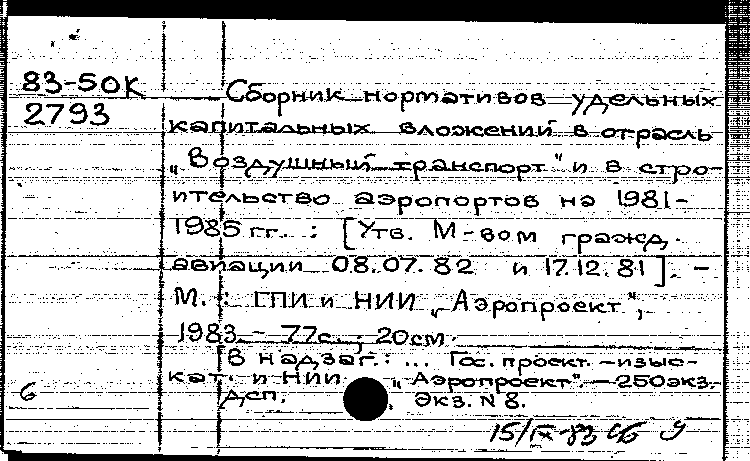 83-5OK
2793
Сборник нормативов удельных
капитальных вложений в отрасль
„Воздушный транспорт" и в стро-
ительство аэропортов на 1981-
1985 гг. : [Утв. М-вом гражд.
авиации 08.07.82 и 17.12.81]. –
М. : ГПИ и НИИ „Аэропроект",
1983. – 77с. ; 20см.
В надзаг.: ... Гос. проект.-изыс-
кат. и НИИ „Аэропроект". – 250экз.
Дсп. Экз. N 8.
6
15/IX-83